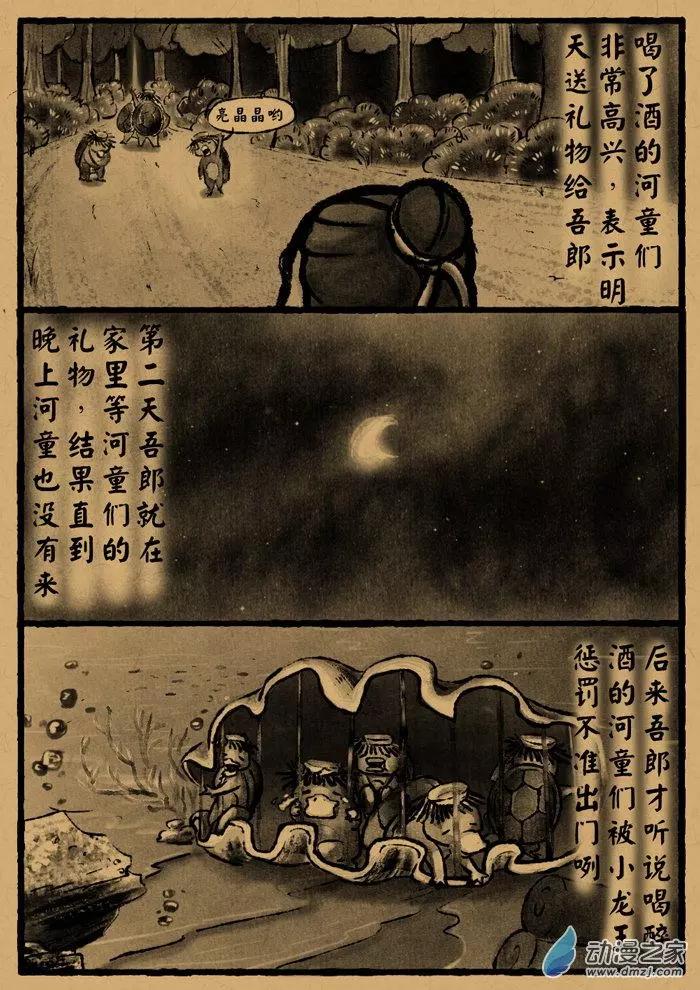 喝了酒的河童们
非常高兴，表示明
天送礼物给吾郎
亮晶晶哟
第二天吾郎就在
家里等河童们的
礼物，结果直到
晚上河童也没有来
后来吾郎才听说喝醉
酒的河童们被小龙王
惩罚不准出门咧
动漫之家
www.dmzj.com